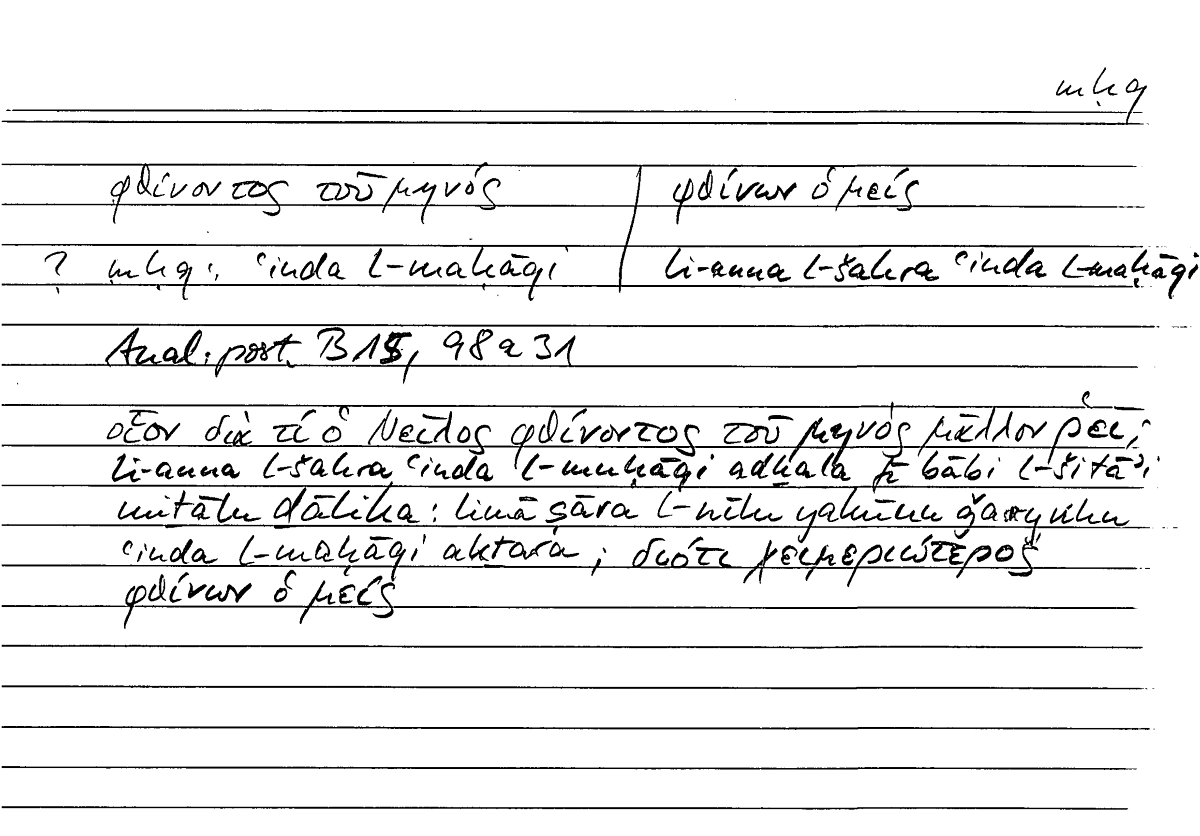 mḥq
φθίνοντος τοῦ μηνός | φθίνων ὁ μείς
? mḥq: ʿinda l-maḥāqi | li-anna l-šahra ʿinda l-maḥāqi
Anal. post. B 15, 98 a 31
οἷον διὰ τί ὁ Νεῖλος φθίνοντος τοῦ μηνὸς μᾶλλον ῥεῖ;
li-anna l-šahra ʿinda l-muḥāqi adḫala fī bābi l-šitāʾi
miṯālu ḏālika: limā ṣāra l-nīlu yakūnu ǧaryuhu
ʿinda l-maḥāqi akṯara; διότι χειμεριώτερος
φθίνων ὁ μείς